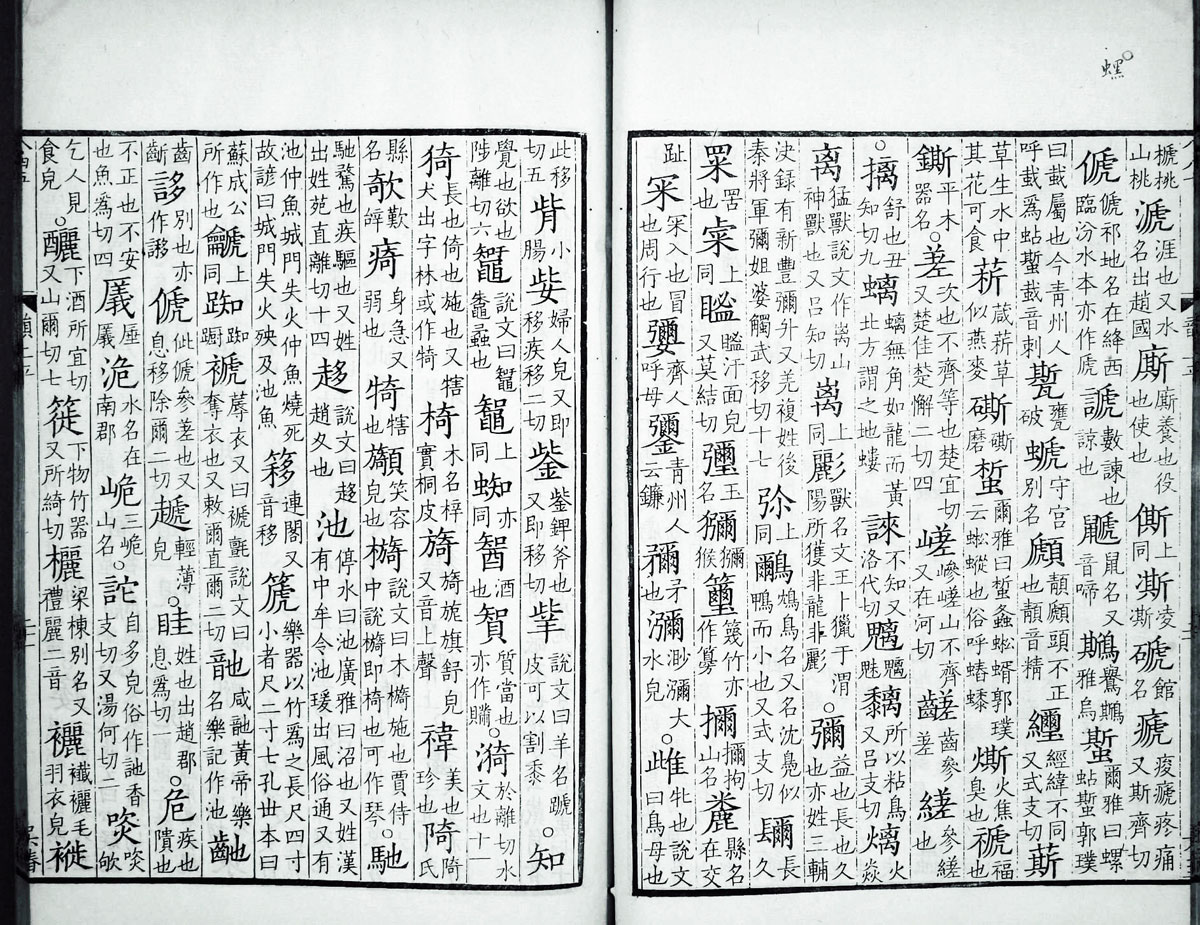 榹桃山桃㴲涯也又水名出趙國廝廝養也役也使也㒋上同凘凌凘磃館名㾷痠㾷疼痛又斯齊切
傂傂祁地名在絳西臨汾水本亦作虒謕數諫也諒也鼶鼠名又音啼鷈鸒鷈斯雅烏蟴爾雅曰螺蛅蟴郭璞
曰䖣屬也今青州人呼䖣爲蛅蟴䖣音刺甕破螔守宮別名頭不正也音精經緯不同又式支切
草生水中其花可食菥葴菥草似燕麥磨蜤爾雅曰蜤螽蜙蝑郭璞云蜙也俗呼蝽燍火焦臭也禠福也
鐁平木器名。差次也不齊等也楚宜切又楚佳楚懈二切四嵯嵾嵯山不齊又在河切齹齒參差縒參縒也
。摛舒也丑知切九螭無角如龍而黃北方謂之地螻誺不知又洛代切魑魑魅黐所以粘鳥又吕支切㷰火焱
离猛獸說文作离山神獸也又吕知切上同彲獸名文王卜獵于渭陽所獲非龍非彲。彌益也長也久也亦姓三輔
決録有新豐彌升又羌複姓後秦將軍彌姐婆觸武移切十七弥上同鸍鳥名又沈鳧似鴨而小也又式支切镾長久
罟也上同汗面皃又莫結切瓕玉名獼獼猴篾竹亦作擟擟拘山名麊縣名在交
趾冞冞入也冒也周行也齊人呼母青州人云鐮矛也瀰渺瀰大水皃。雌牝也說文曰鳥母也
此移切五小腸姕婦人皃又即移疾移二切鈭鈭錍斧也又即移切說文曰羊名蹏皮可以割黍。知
覺也欲也陟離切六鼅說文曰鼅鼄蟊也上同蜘亦同酒也質當也亦作。漪於離切水文也十一
猗長也倚也施也又犬出字林或作犄椅木名梓實桐皮旖旖旎旗舒皃又音上聲禕美也珍也陭陭氏
縣名欹歎辭身急又弱也犄犗也笑容皃也檹說文曰木檹施也賈侍中說檹即椅也可作琴。馳
馳騖也疾驅也又姓出姓苑直離切十四趍說文曰趍趙夂也池停水曰池廣雅曰沼也又姓漢有中牟令池瑗出風俗通又有
池仲魚城門失火仲魚燒死故諺曰城門失火殃及池魚簃連閣又音移篪樂器以竹爲之長尺四寸小者尺二寸七孔世本曰
蘇成公所作也龥同䶵上同踟踟躕褫蓐衣又曰褫氈說文曰奪衣也又敕爾直爾二切咸黃帝樂名樂記作池
齒齗誃別也亦作傂傂參差也又息移除爾二切輕薄皃。眭姓也出趙郡息爲切一。危疾也隤也
不正也不安也魚爲切四㕒㕒洈水名在南郡峗三峗山名。詑自多皃俗作訑香支切又湯何切二
乞人見食皃。釃下酒所宜切又山爾切七簁下物竹器又所綺切欐梁棟別名又禮麗二音襹襳襹毛羽衣皃褷